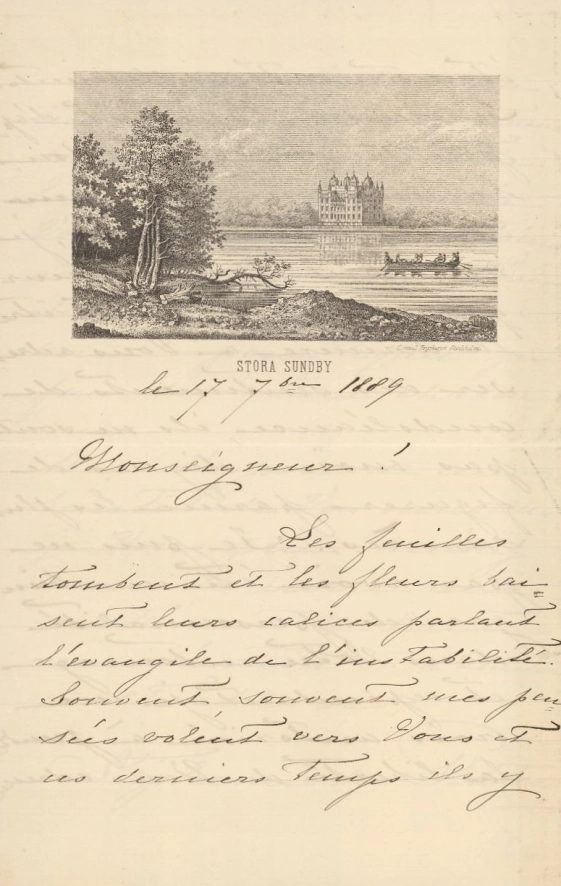 STORA SUNDBY
le 17 7bre 1889
Monseigneur!
Les feuilles
tombent et les fleurs bai=
sent leurs calices parlant
l'évangile de l'instabilité.
Souvent, souvent mes pen=
sées volent vers Vous et
ces derniers temps ils y